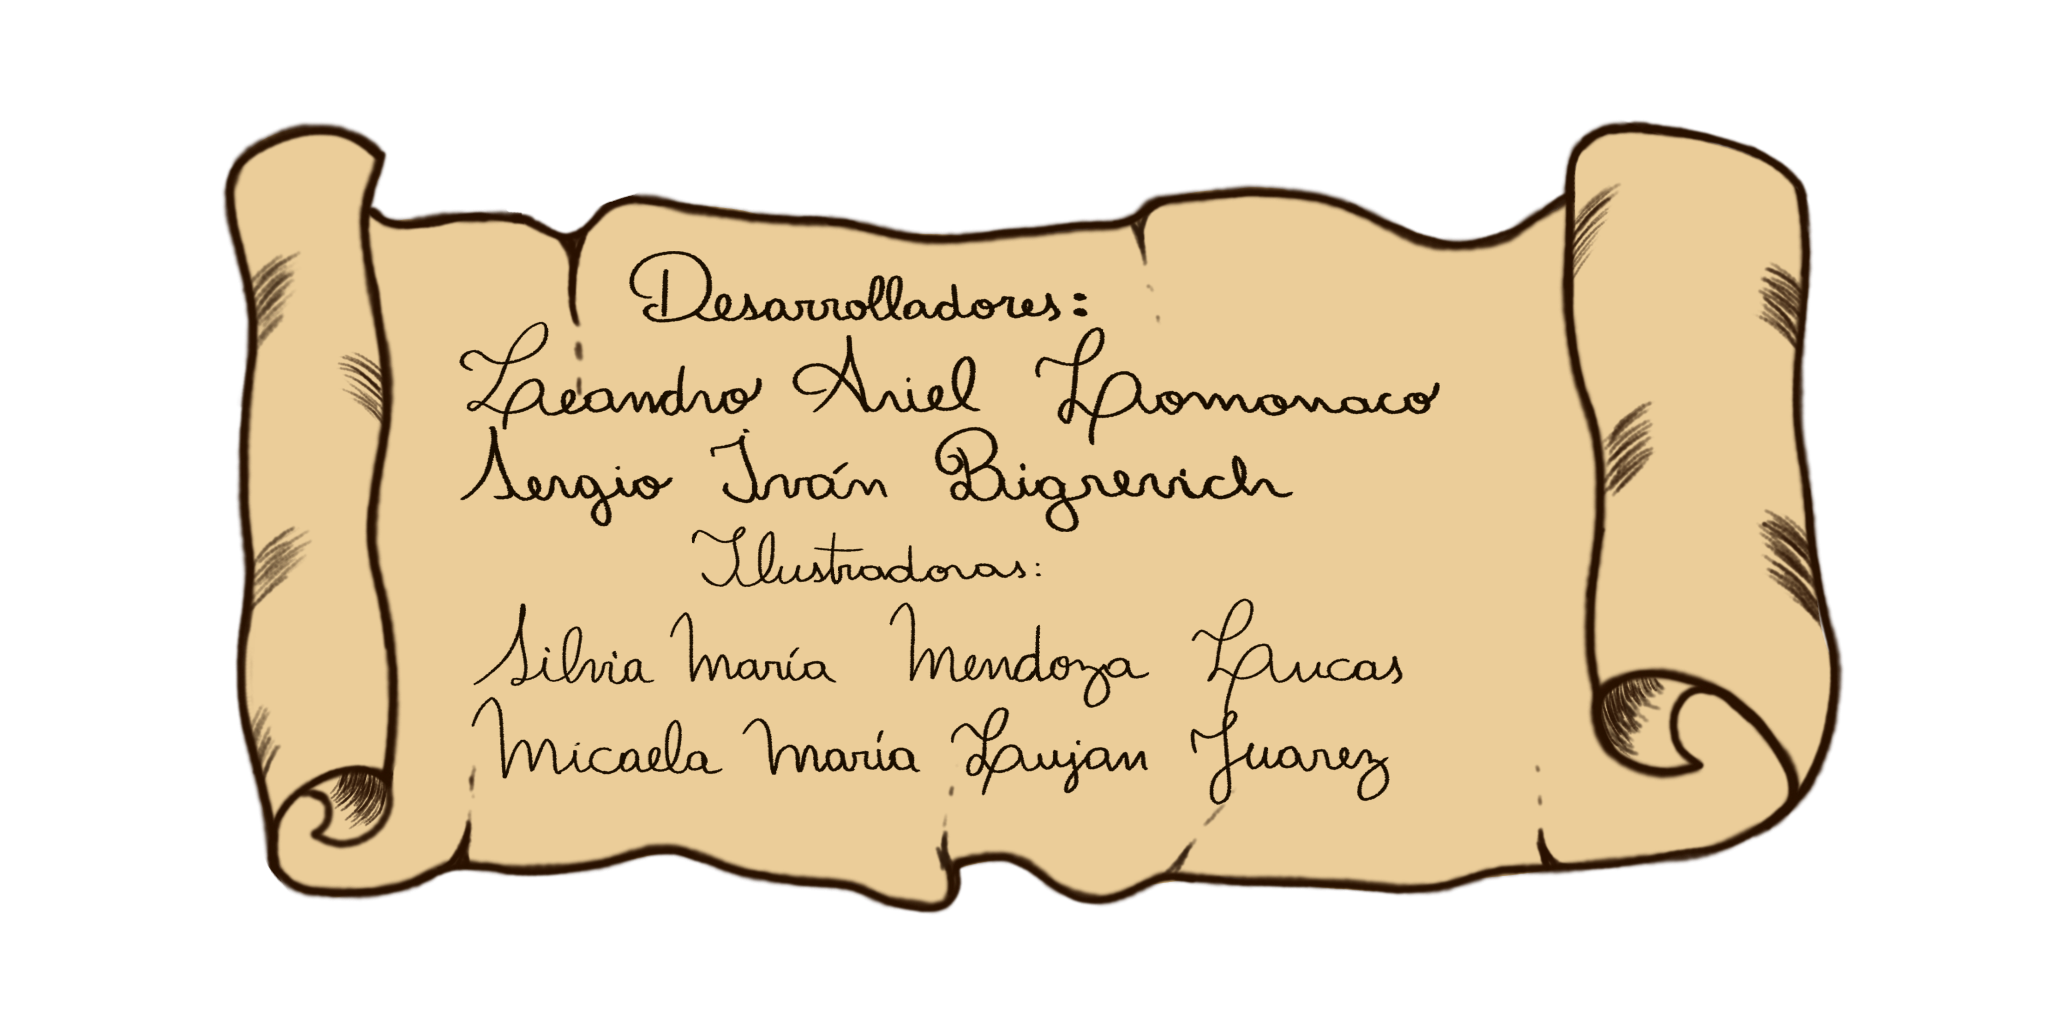 Desarrolladores:
Leandro Ariel Lomonaco
Sergio Iván Bigrevich
Ilustradoras:
Silvia María Mendoza Lucas
Micaela María Lujan Juarez